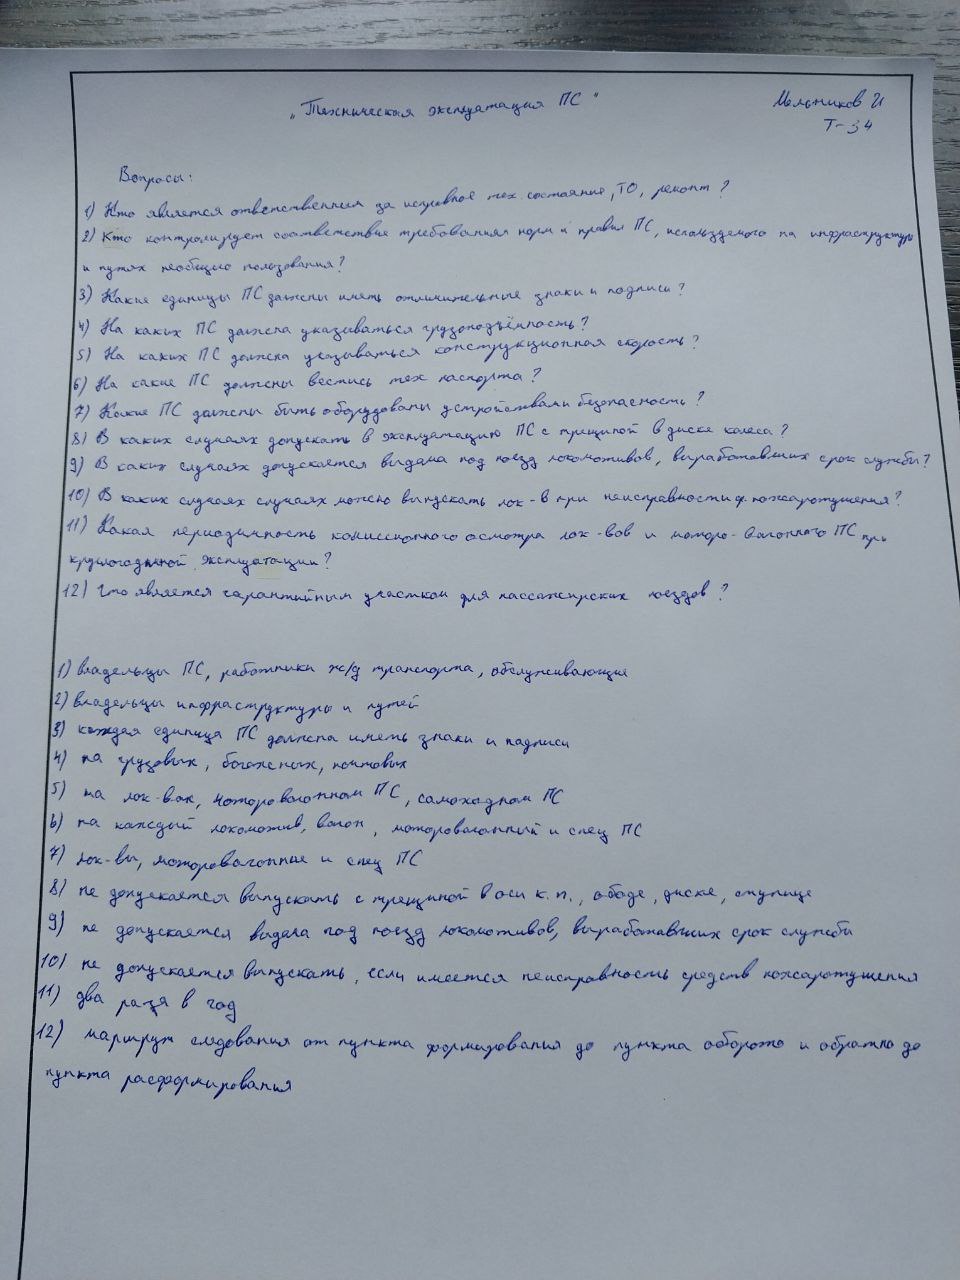 „Техническая эксплуатация ПС"
Мельников И
Т-34
Вопросы:
1) Кто является ответственным за исправное тех состояние, ТО, ремонт?
2) Кто контролирует соответствие требованиям норм и правил ПС, используемого на инфраструктуры
и путях необщего пользования?
3) Какие единицы ПС должны иметь отличительные знаки и надписи?
4) На каких ПС должна указываться грузоподъёмность?
5) На каких ПС должна указываться конструкционная скорость?
6) На какие ПС должны вестись тех паспорта?
7) Какие ПС должны быть оборудованы устройствами безопасность?
8) В каких случаях допускать в эксплуатацию ПС с трещиной в диске колеса?
9) В каких случаях допускается выдача под поезд локомотивов, выработавших срок службы?
10) В каких случаях случаях можно выпускать лок-в при неисправности ф. пожаротушения?
11) Какая периодичность комиссионного осмотра лок-вов и моторо-вагонного ПС при
круглогодичной эксплуатации?
12) Что является гарантийным участком для пассажирских поездов?
1) владельцы ПС, работники ж/д транспорта, обслуживающие
2) владельцы инфраструктуры и путей
3) каждая единица ПС должна иметь знаки и надписи
4) на грузовых, багажных, почтовых
5) на лок-вах, моторовагонном ПС, самоходном ПС
6) на каждый локомотив, вагон, моторовагонный и спец ПС
7) лок-вы, моторовагонные и спец ПС
8) не допускается выпускать с трещиной в оси к.п., ободе, диске, ступице
9) не допускается выдача под поезд локомотивов, выработавших срок службы
10) не допускается выпускать, если имеется неисправность средств пожаротушения
11) два раза в год
12) маршрут следования от пункта формирования до пункта оборота и обратно до
пункта расформирования